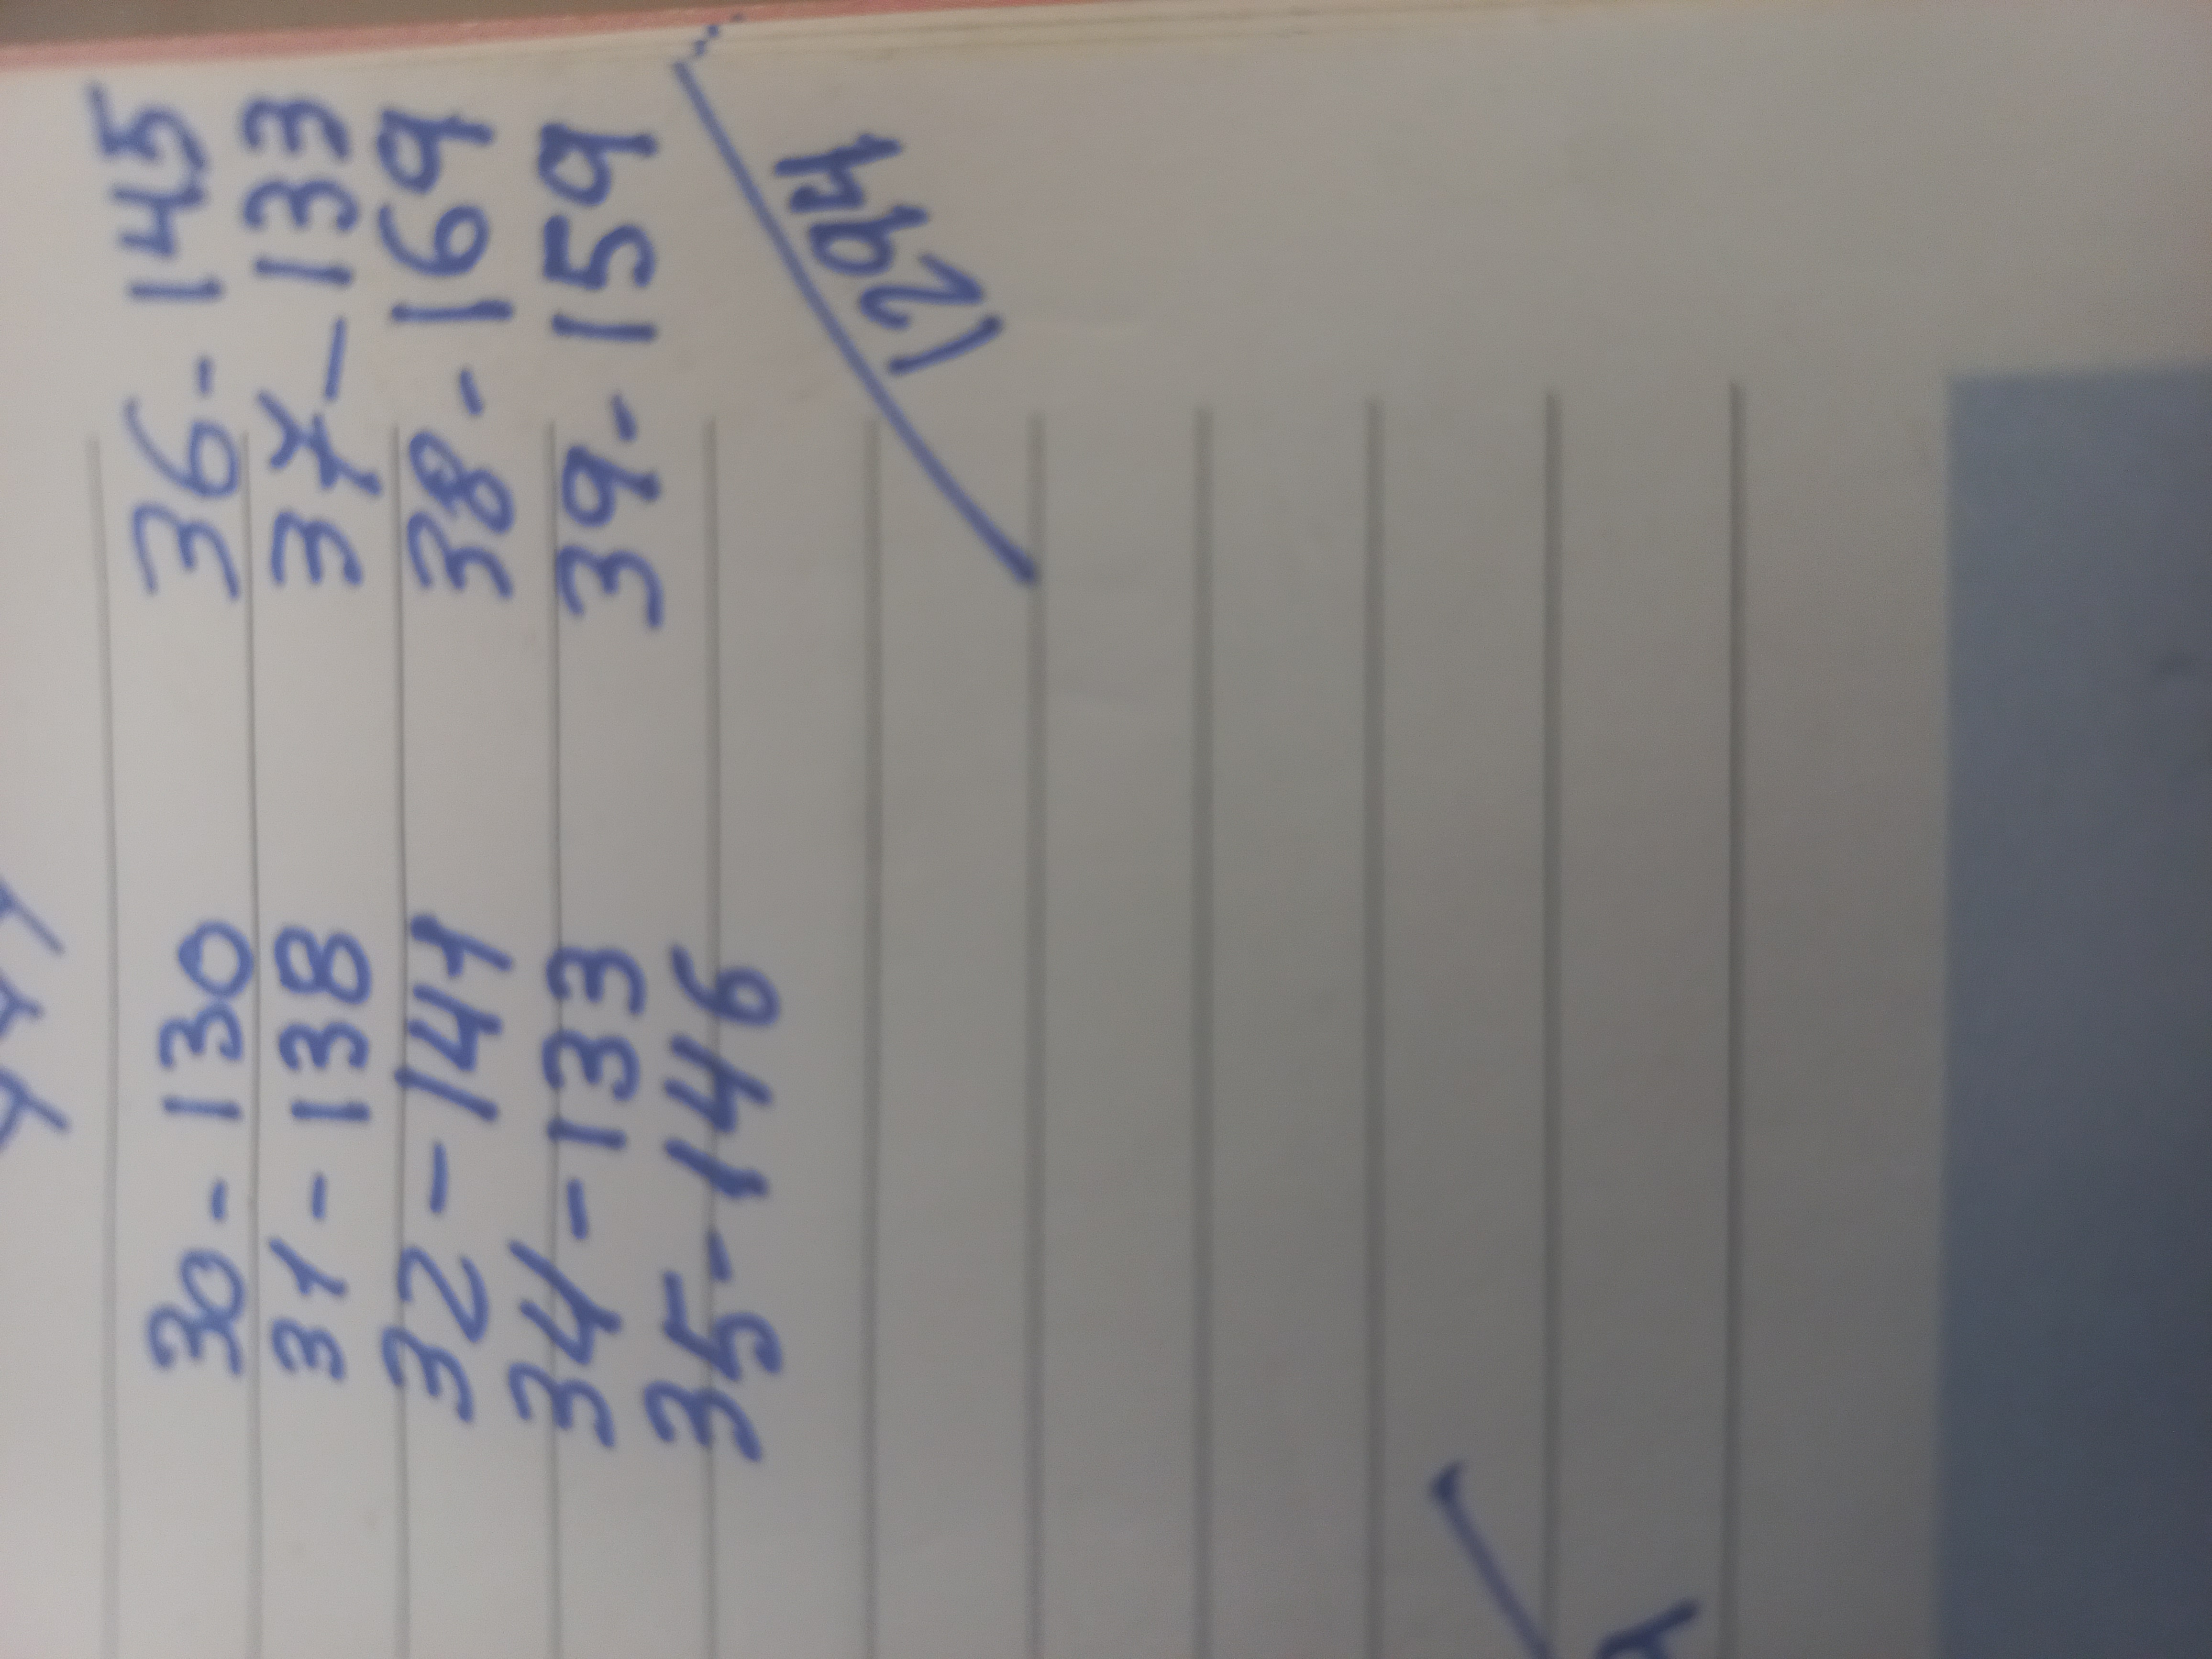 30 - 130 36 - 145
31 - 138 37 - 133
32 - 141 38 - 169
34 - 133 39 - 159
35 - 146
1294